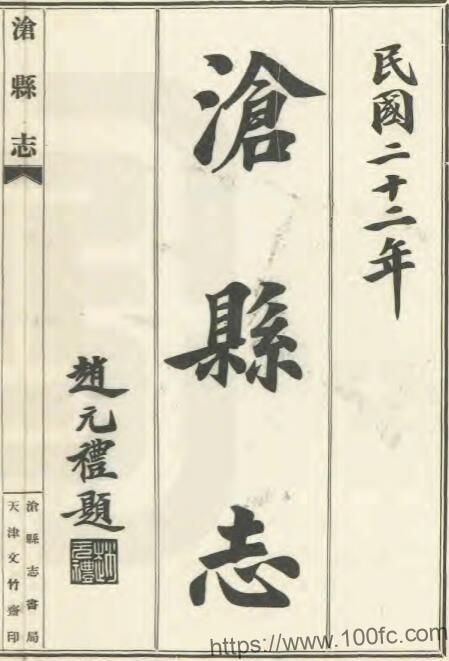 民國二十二年
滄縣志
趙元禮題
趙元禮
滄縣志
滄縣志書局
天津文竹齋印
https://www.100fc.com